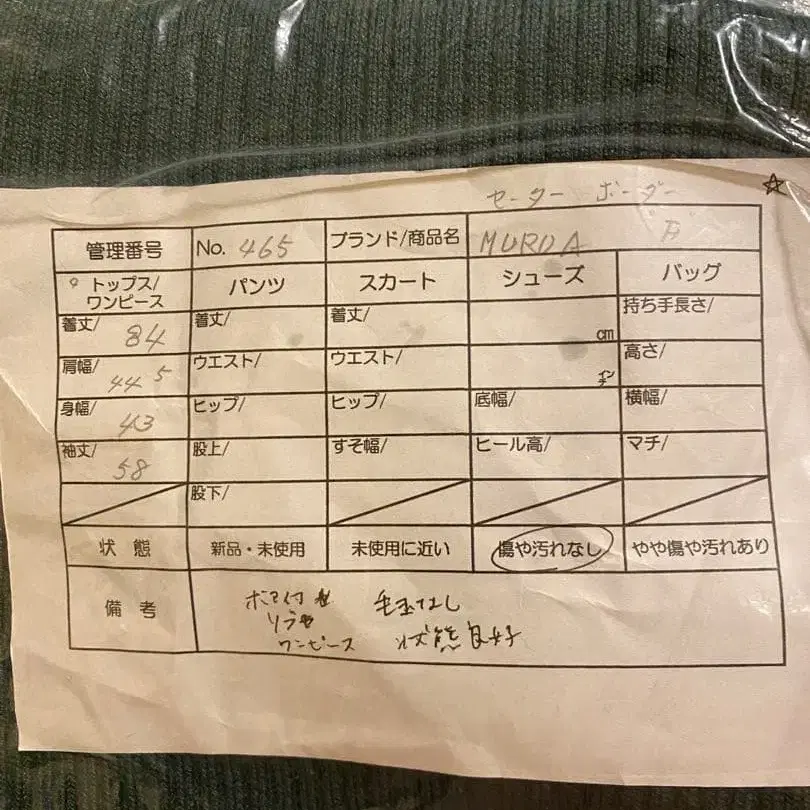 セーター ボーダー ☆
管理番号 No. 465 ブランド/商品名 MURUA
トップス/ワンピース パンツ スカート シューズ バッグ
着丈/ 84 着丈/ 着丈/ cm 持ち手長さ/
肩幅/ 44 5 ウエスト/ ウエスト/ インチ 高さ/
身幅/ 43 ヒップ/ ヒップ/ 底幅/ 横幅/
袖丈/ 58 股上/ すそ幅/ ヒール高/ マチ/
股下/
状態 新品・未使用 未使用に近い 傷や汚れなし やや傷や汚れあり
備考 毛玉なし
ワンピース 状態良好